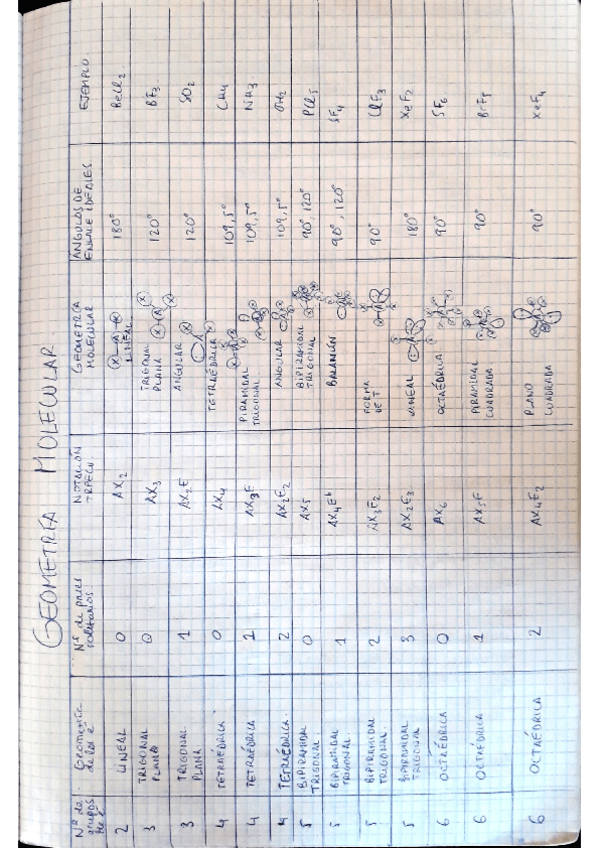 GEOMETRÍA MOLECULAR
Nº de grupos de e⁻ | Geometría de los e⁻ | Nº de pares solitarios | NOTACIÓN TRPECV | GEOMETRÍA MOLECULAR | ÁNGULOS DE ENLACE IDEALES | EJEMPLO
2 | LINEAL | 0 | AX2 | LINEAL | 180° | BeCl2
3 | TRIGONAL PLANA | 0 | AX3 | TRIGONAL PLANA | 120° | BF3
3 | TRIGONAL PLANA | 1 | AX2E | ANGULAR | 120° | SO2
4 | TETRAÉDRICA | 0 | AX4 | TETRAÉDRICA | 109,5° | CH4
4 | TETRAÉDRICA | 1 | AX3E | PIRAMIDAL TRIGONAL | 109,5° | NH3
4 | TETRAÉDRICA | 2 | AX2E2 | ANGULAR | 109,5° | OH2
5 | BIPIRAMIDAL TRIGONAL | 0 | AX5 | BIPIRAMIDAL TRIGONAL | 90°, 120° | PCl5
5 | BIPIRAMIDAL TRIGONAL | 1 | AX4E^b | BALANCÍN | 90°, 120° | SF4
5 | BIPIRAMIDAL TRIGONAL | 2 | AX3E2 | FORMA DE T | 90° | ClF3
5 | BIPIRAMIDAL TRIGONAL | 3 | AX2E3 | LINEAL | 180° | XeF2
6 | OCTAÉDRICA | 0 | AX6 | OCTAÉDRICA | 90° | SF6
6 | OCTAÉDRICA | 1 | AX5E | PIRAMIDAL CUADRADA | 90° | BrF5
6 | OCTAÉDRICA | 2 | AX4E2 | PLANO CUADRADA | 90° | XeF4